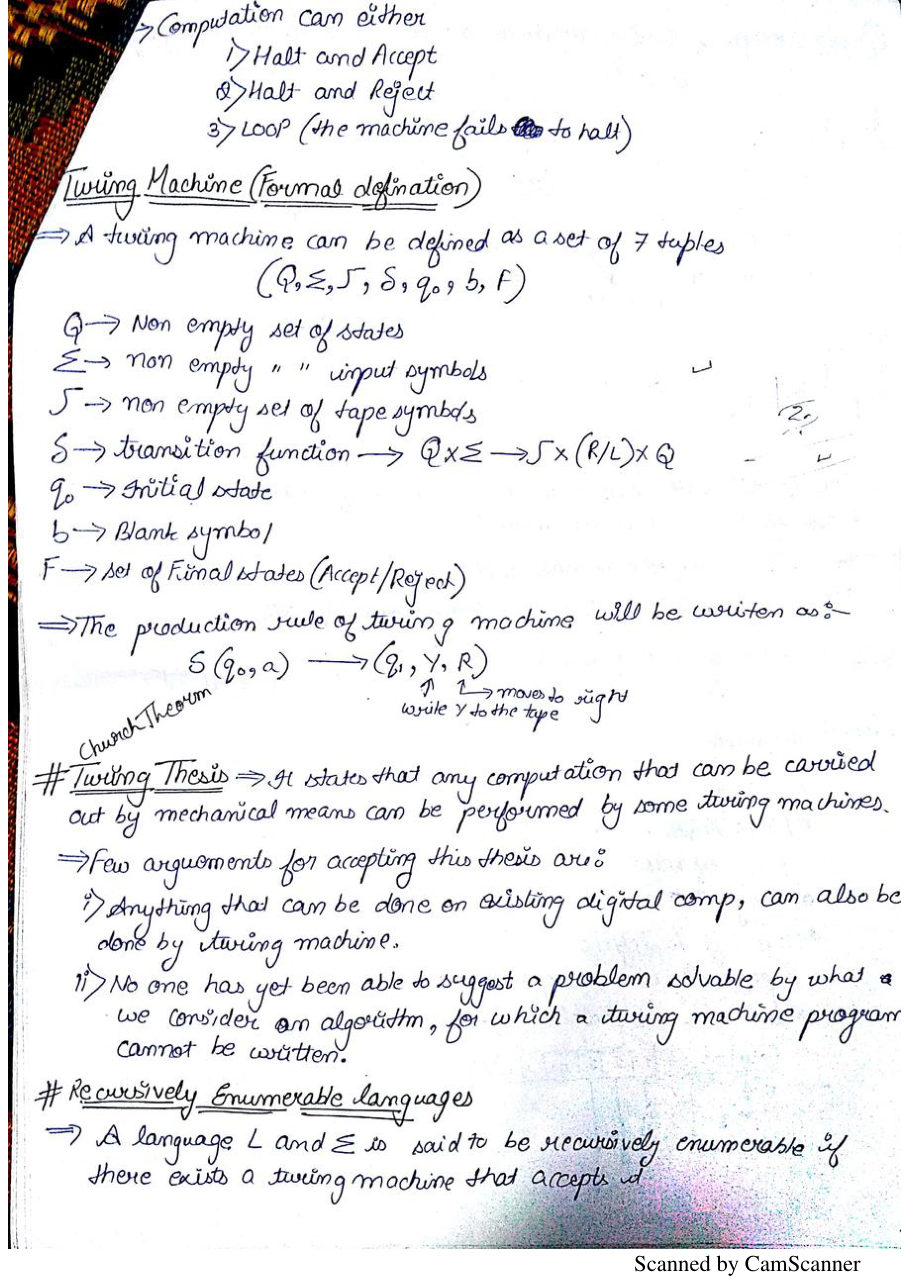 → Computation can either
1) Halt and Accept
2) Halt and Reject
3) LOOP (the machine fails to halt)
Turing Machine (Formal defination)
⇒ A turing machine can be defined as a set of 7 tuples
(Q, Σ, Γ, δ, q₀, b, F)
Q → Non empty set of states
Σ → non empty " " input symbols
Γ → non empty set of tape symbols
δ → transition function → Q x Σ → Γ x (R/L) x Q
q₀ → Initial state
b → Blank symbol
F → set of Final states (Accept/Reject)
⇒ The production rule of turing machine will be writen as:-
δ (q₀, a) → (q₁, Y, R)
↑ → moves to right
write Y to the tape
Church Theorm
# Turing Thesis ⇒ It states that any computation that can be carried
out by mechanical means can be performed by some turing machines.
⇒ Few arguements for accepting this thesis are:
i) Anything that can be done on existing digital comp, can also be
done by turing machine.
ii) No one has yet been able to suggest a problem solvable by what
we consider an algorithm, for which a turing machine program
cannot be written.
# Recursively Enumerable languages
⇒ A language L and Σ is said to be recursively enumerable if
there exists a turing machine that accepts it
Scanned by CamScanner